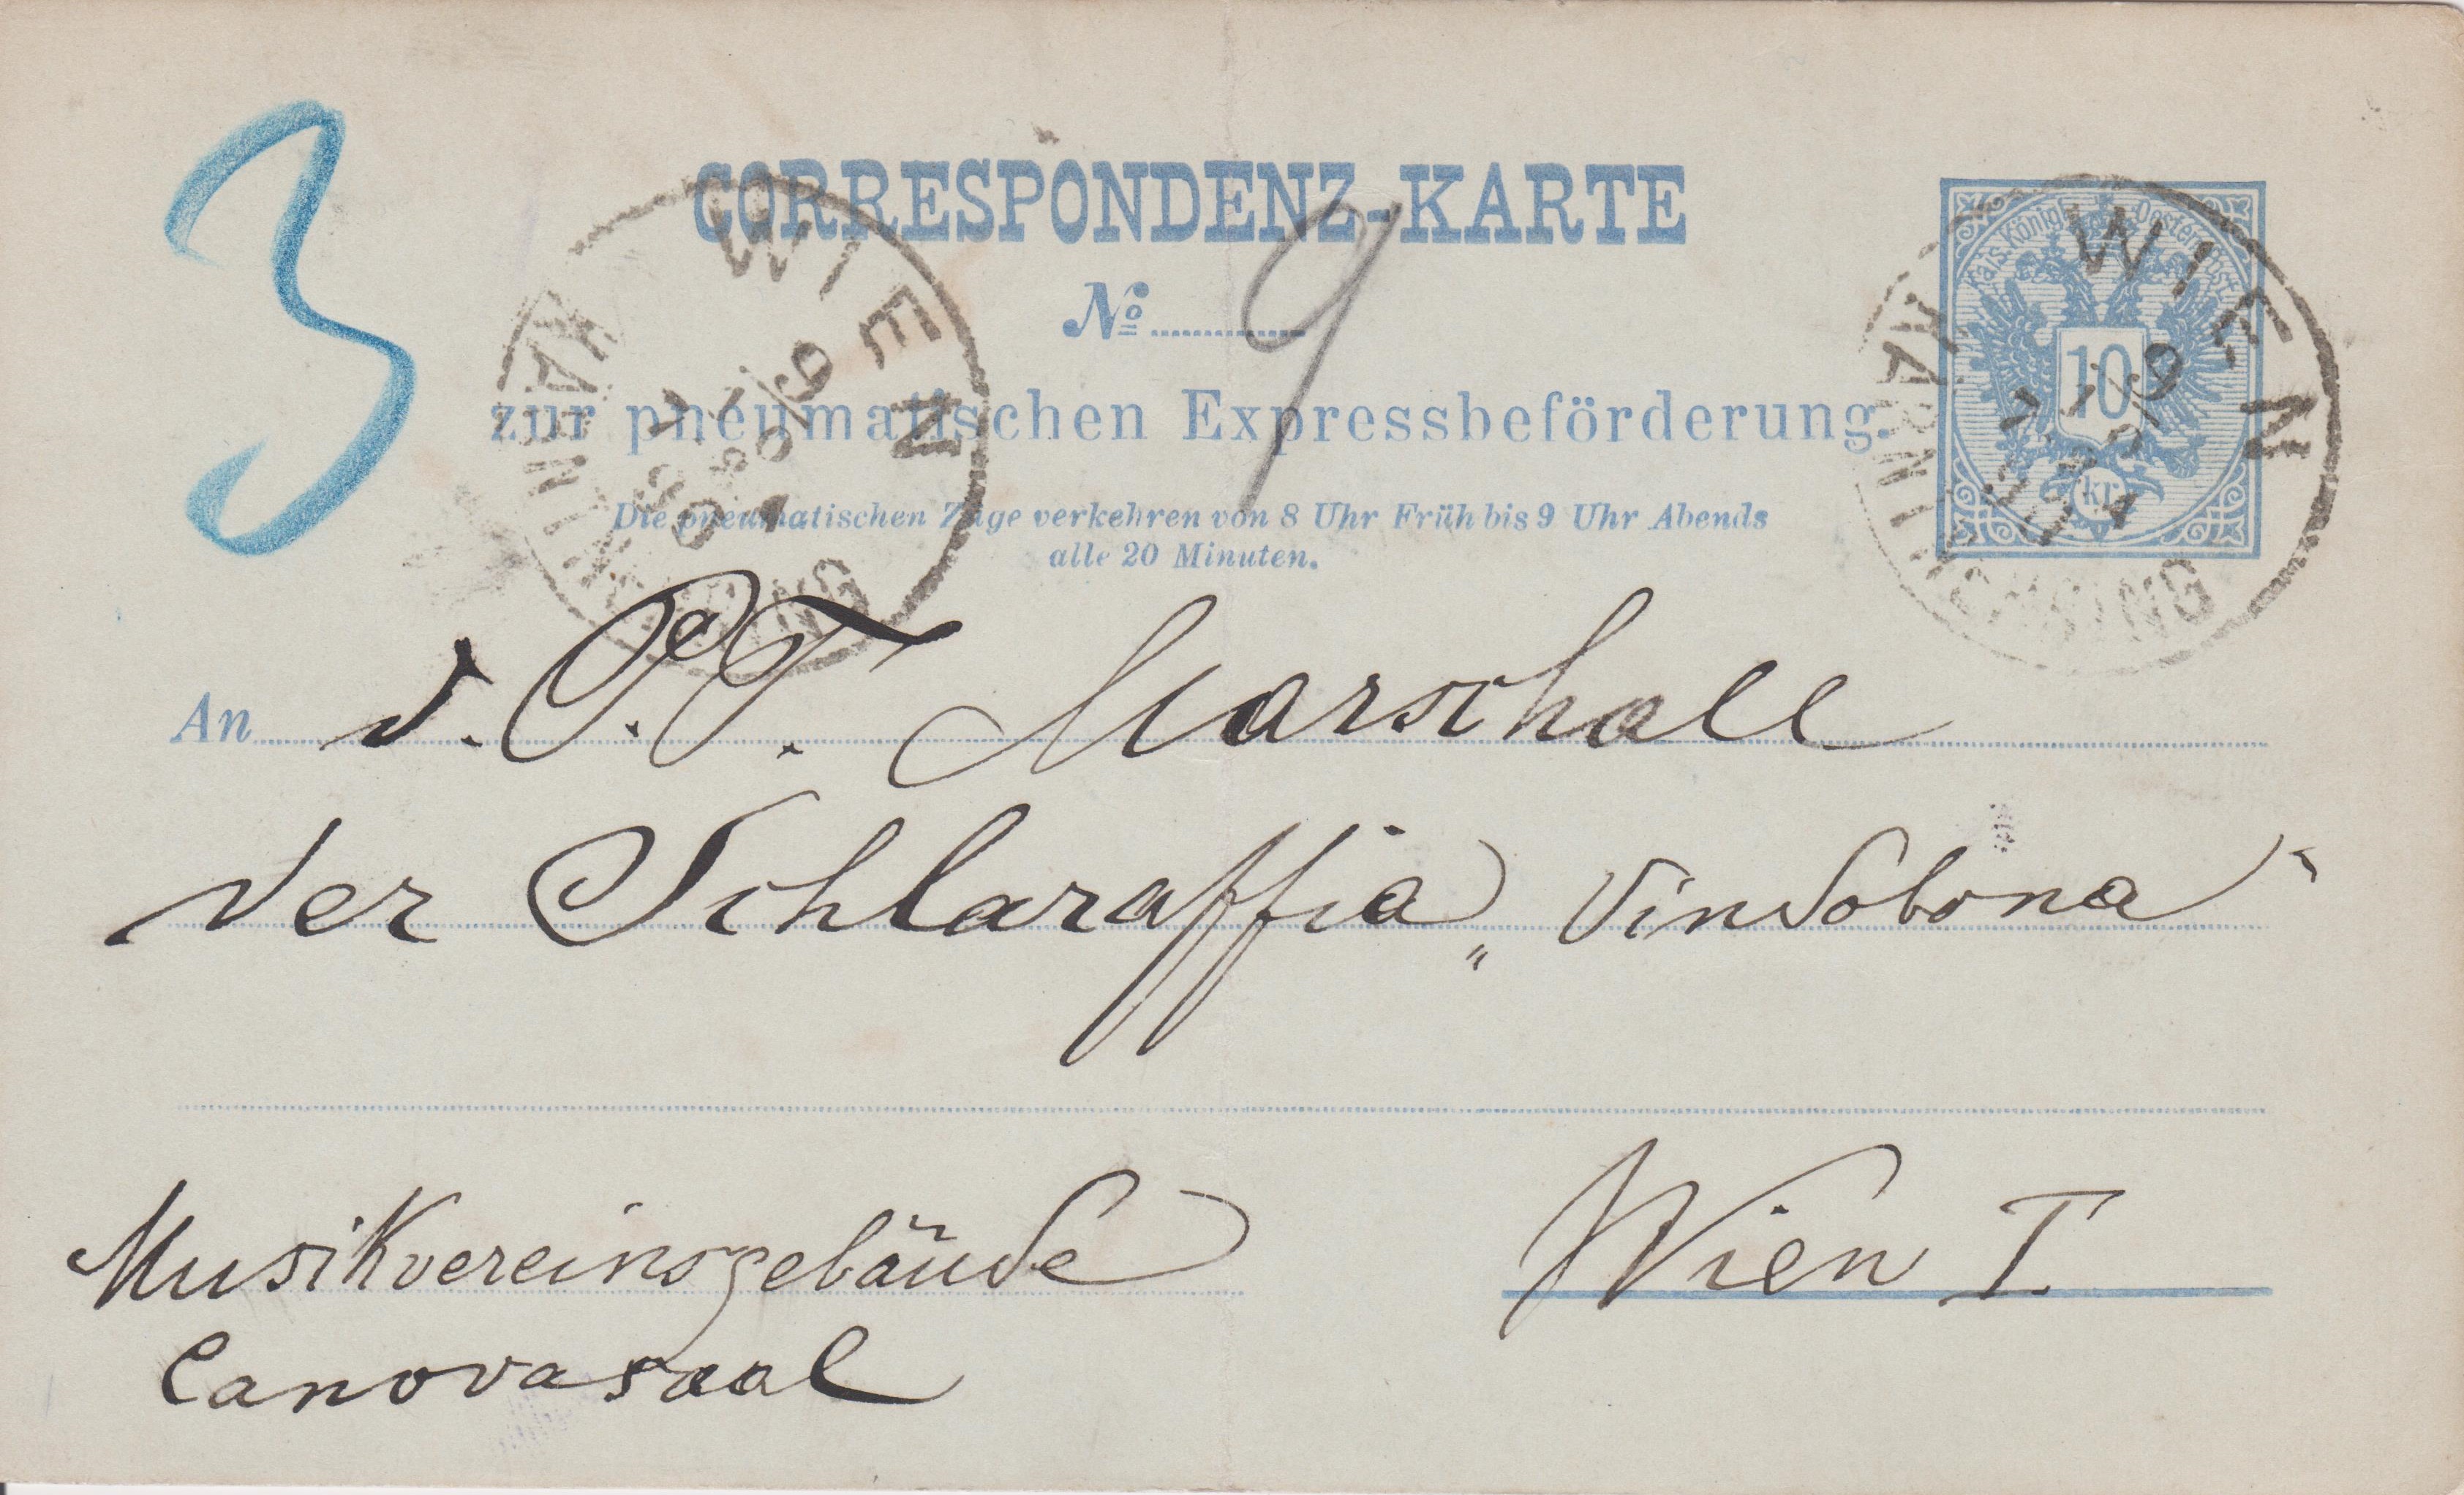 3
CORRESPONDENZ-KARTE
No 9
zur pneumatischen Expressbeförderung.
Die pneumatischen Züge verkehren von 8 Uhr Früh bis 9 Uhr Abends
alle 20 Minuten.
WIEN
Kais. König. Oesterr. Post
10
kr.
WIEN
An d. P. T. Marschall
der Schlaraffia „Vindobona“
Musikvereinsgebäude
Wien I
Canovasaal